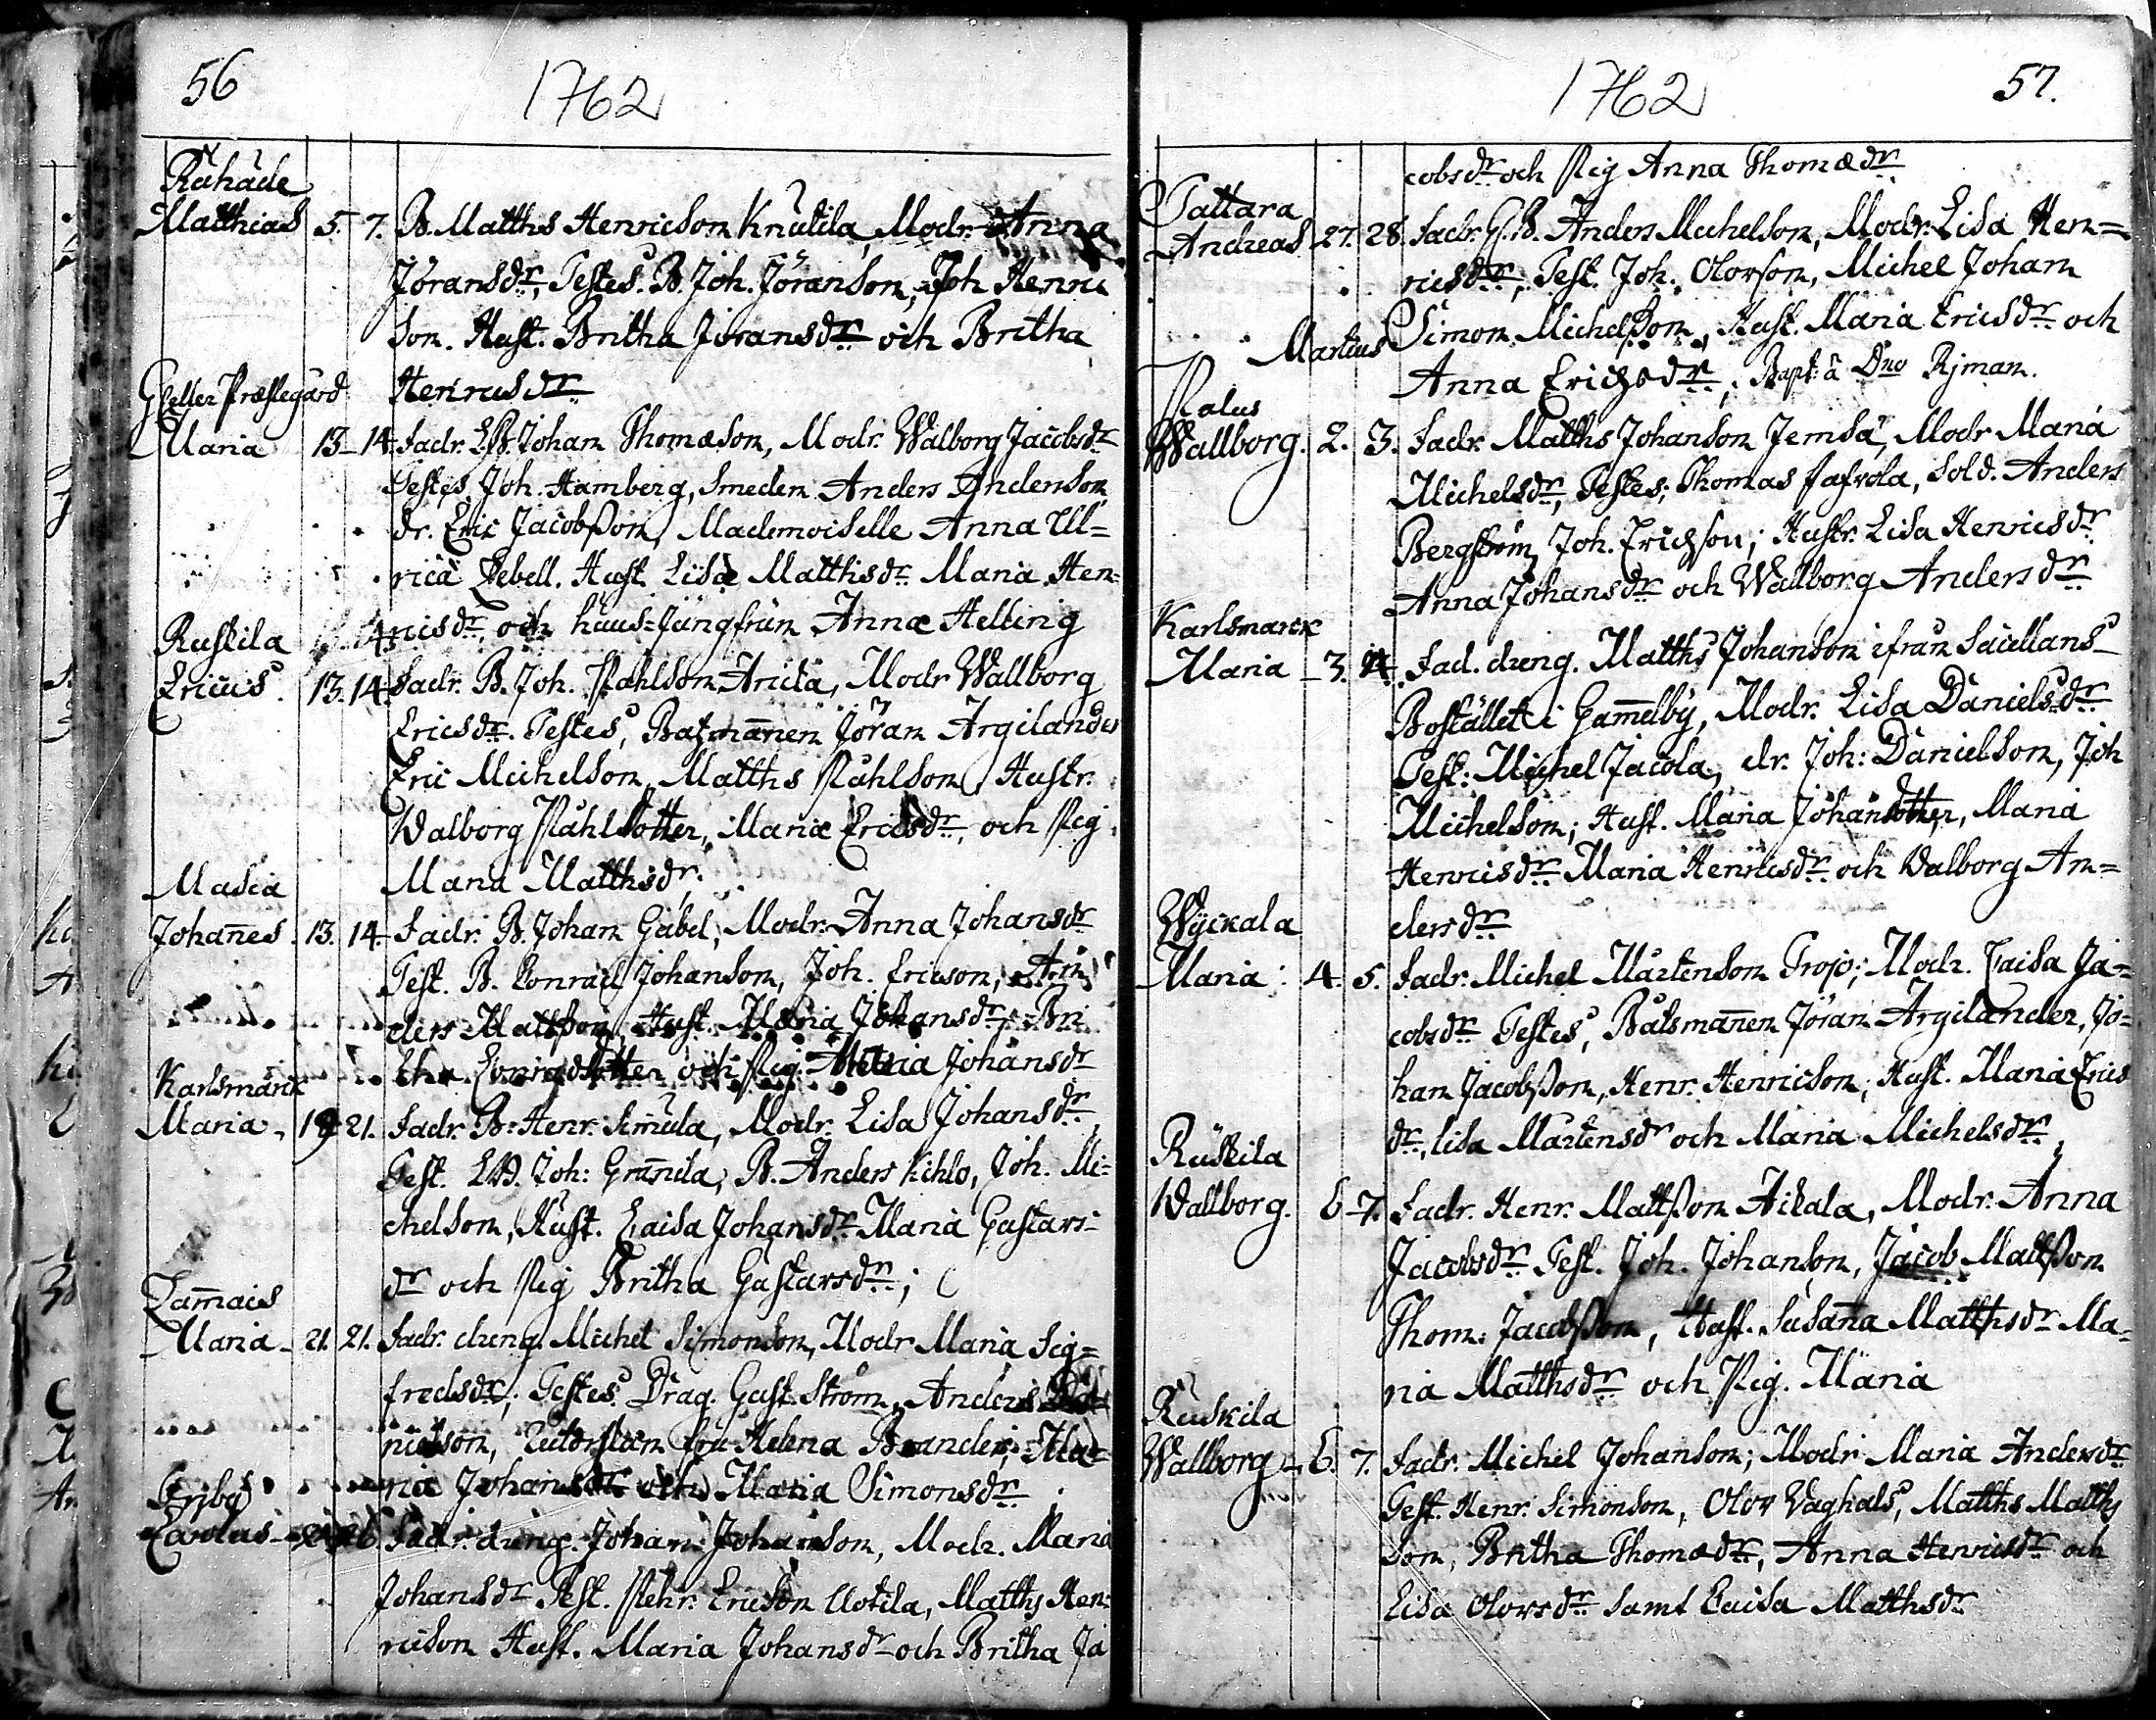 56
1762
Råhåde
Matthias 5. 7. B. Matths Henricson Knutila, Modr. Anna
Jöransdr, Testes. B. Joh. Jöranson, Joh Henric
son. Hust. Britha Jöransdr och Britha
Henricsdr
Gl. eller Præstegård
Maria 13 14. Fadr. LB. Johan Thomæson, Modr. Walborg Jacobsdr
Testes, Joh. Hamberg, Smeden Anders Anderson
dr. Eric Jacobsson, Mademoiselle Anna Ul=
rica Lebell. Hust. Lisa Matthsdr. Maria Hen=
ricsdr. och huus=Jungfrun Anna Helling
Ruskila
Ericus. 13. 14. Fadr. B. Joh. Påhlson, Modr Wallborg
Ericsdr. Testes, Båtzmannen Jöran Argilander
Eric Michelson, Matths Påhlson, Hustr.
Walborg Påhlsdotter, Maria Ericsdr, och Pig.
Maria Matthsdr.
Masia
Johannes. 13. 14. Fadr. B. Johan Gåbel, Modr. Anna Johansdr
Test. B. Conrad Johanson, Joh. Ericson, An
ders Mattsson, Hust. Maria Johansdr, Bri
tha dotter och Pig. Maria Johansdr
Karlsmarck
Maria, 19 21. Fadr. B. Henr. Simula, Modr. Lisa Johansdr,
Test. LB. Joh: Grannila, B. Anders Kihlo, Joh. Mi=
chelson, Hust. Caisa Johansdr Maria Gustavs=
dr och Pig Britha Gustavsdr;
Dammais
Maria 21. 21. Fadr. dreng. Michel Simonson, Modr Maria Sig=
fredsdr; Testes. Drag. Gust. Ström, Anders
nielson, fru Helena Brander, Ma=
ria Johansdr och Maria Simonsdr.
Carolus 26 Fadr. dreng. Johan Johanson, Modr. Maria
Johansdr Test. Pehr. Ericson Uotila, Matths Hen=
ricson Hust. Maria Johansdr och Britha Ja
1762
57.
cobsdr och Pig Anna Thomædr
Tattara
Andreas 27. 28. Fadr. G.B. Anders Michelson, Modr. Lisa Hen=
ricsdr, Test. Joh. Olovson, Michel Johan
Simon Michelsson, Hust. Maria Ericsdr och
Martius
Anna Erichsdr; Bapt: a Dno Rjman.
Palus
Wallborg. 2. 3. Fadr. Matths Johanson Jemsä, Modr Maria
Michelsdr, Testes; Thomas Jafvola, Sold. Anders
Bergström, Joh. Erichson; Hustr. Lisa Henricsdr
Anna Johansdr och Walborg Andersdr
Karlsmarck
Maria 3. 4. Fad. dreng. Matths Johanson ifrån Sacellans
Bostället i Gammelby, Modr. Lisa Danielsdr
Test: Michel Jacola, dr. Joh: Danielson, Joh
Michelson; Hust. Maria Johansdotter, Maria
Henricsdr Maria Henricsdr och Valborg An=
dersdr
Wyckala
Maria: 4. 5. Fadr. Michel Mårtenson Trojo; Modr. Caisa Ja=
cobsdr Testes, Båtsmannen Jöran Argilander, Jo=
han Jacobsson, Henr. Henricson; Hust. Maria Erics
dr, Lisa Mårtensdr och Maria Michelsdr
Ruskila
Wallborg. 6 7. Fadr. Henr. Mattsson Äikala, Modr. Anna
Jacobsdr Test. Joh. Johanson, Jacob Mattsson
Thom: Jacobsson, Hust. Susanna Matthsdr Ma=
ria Matthsdr och Pig. Maria
Ruskila
Wallborg 6. 7. Fadr. Michel Johanson; Modr Maria Andersdr
Test. Henr. Simonson, Olov Vaghals, Matths Matths
son, Britha Thomædr, Anna Henricsdr och
Lisa Olovsdr samt Caisa Matthsdr